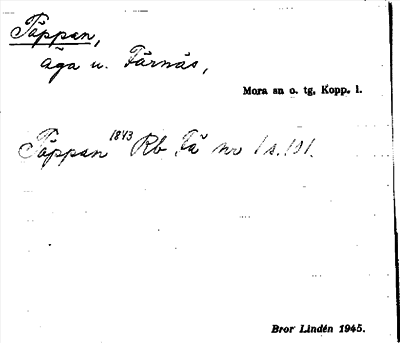 Täppan,
äga u. Färnäs,
Mora sn o. tg, Kopp. l.
Täppan 1843 Rb Fä nr 1 s. 101.
Bror Lindén 1945.